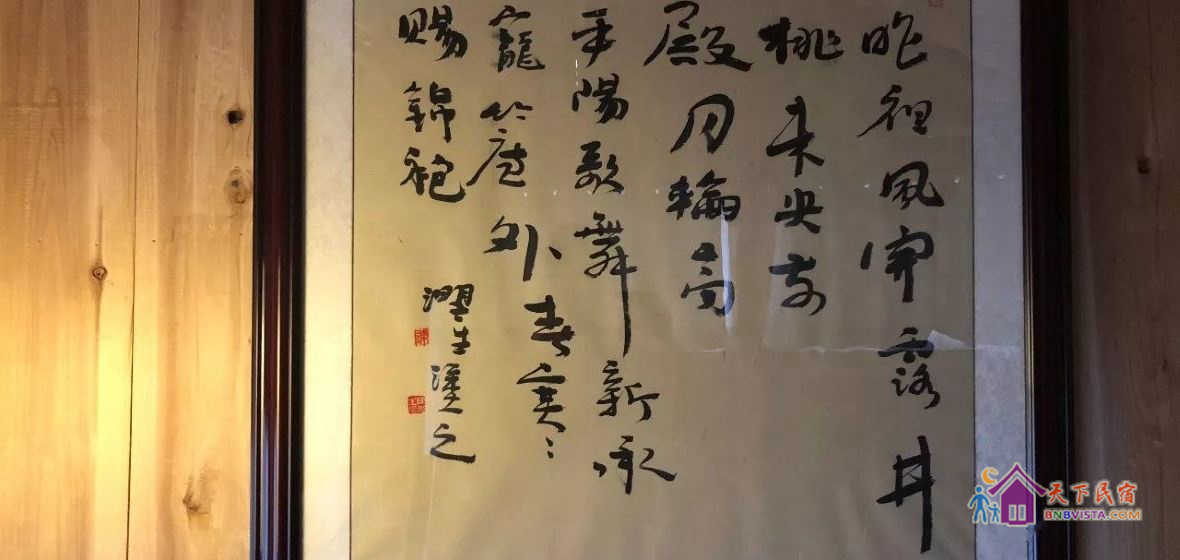 昨夜風開露井
桃未央前
殿月輪高
平陽歌舞新承
寵簾外春寒
賜錦袍
天下民宿
BNBVISTA.COM